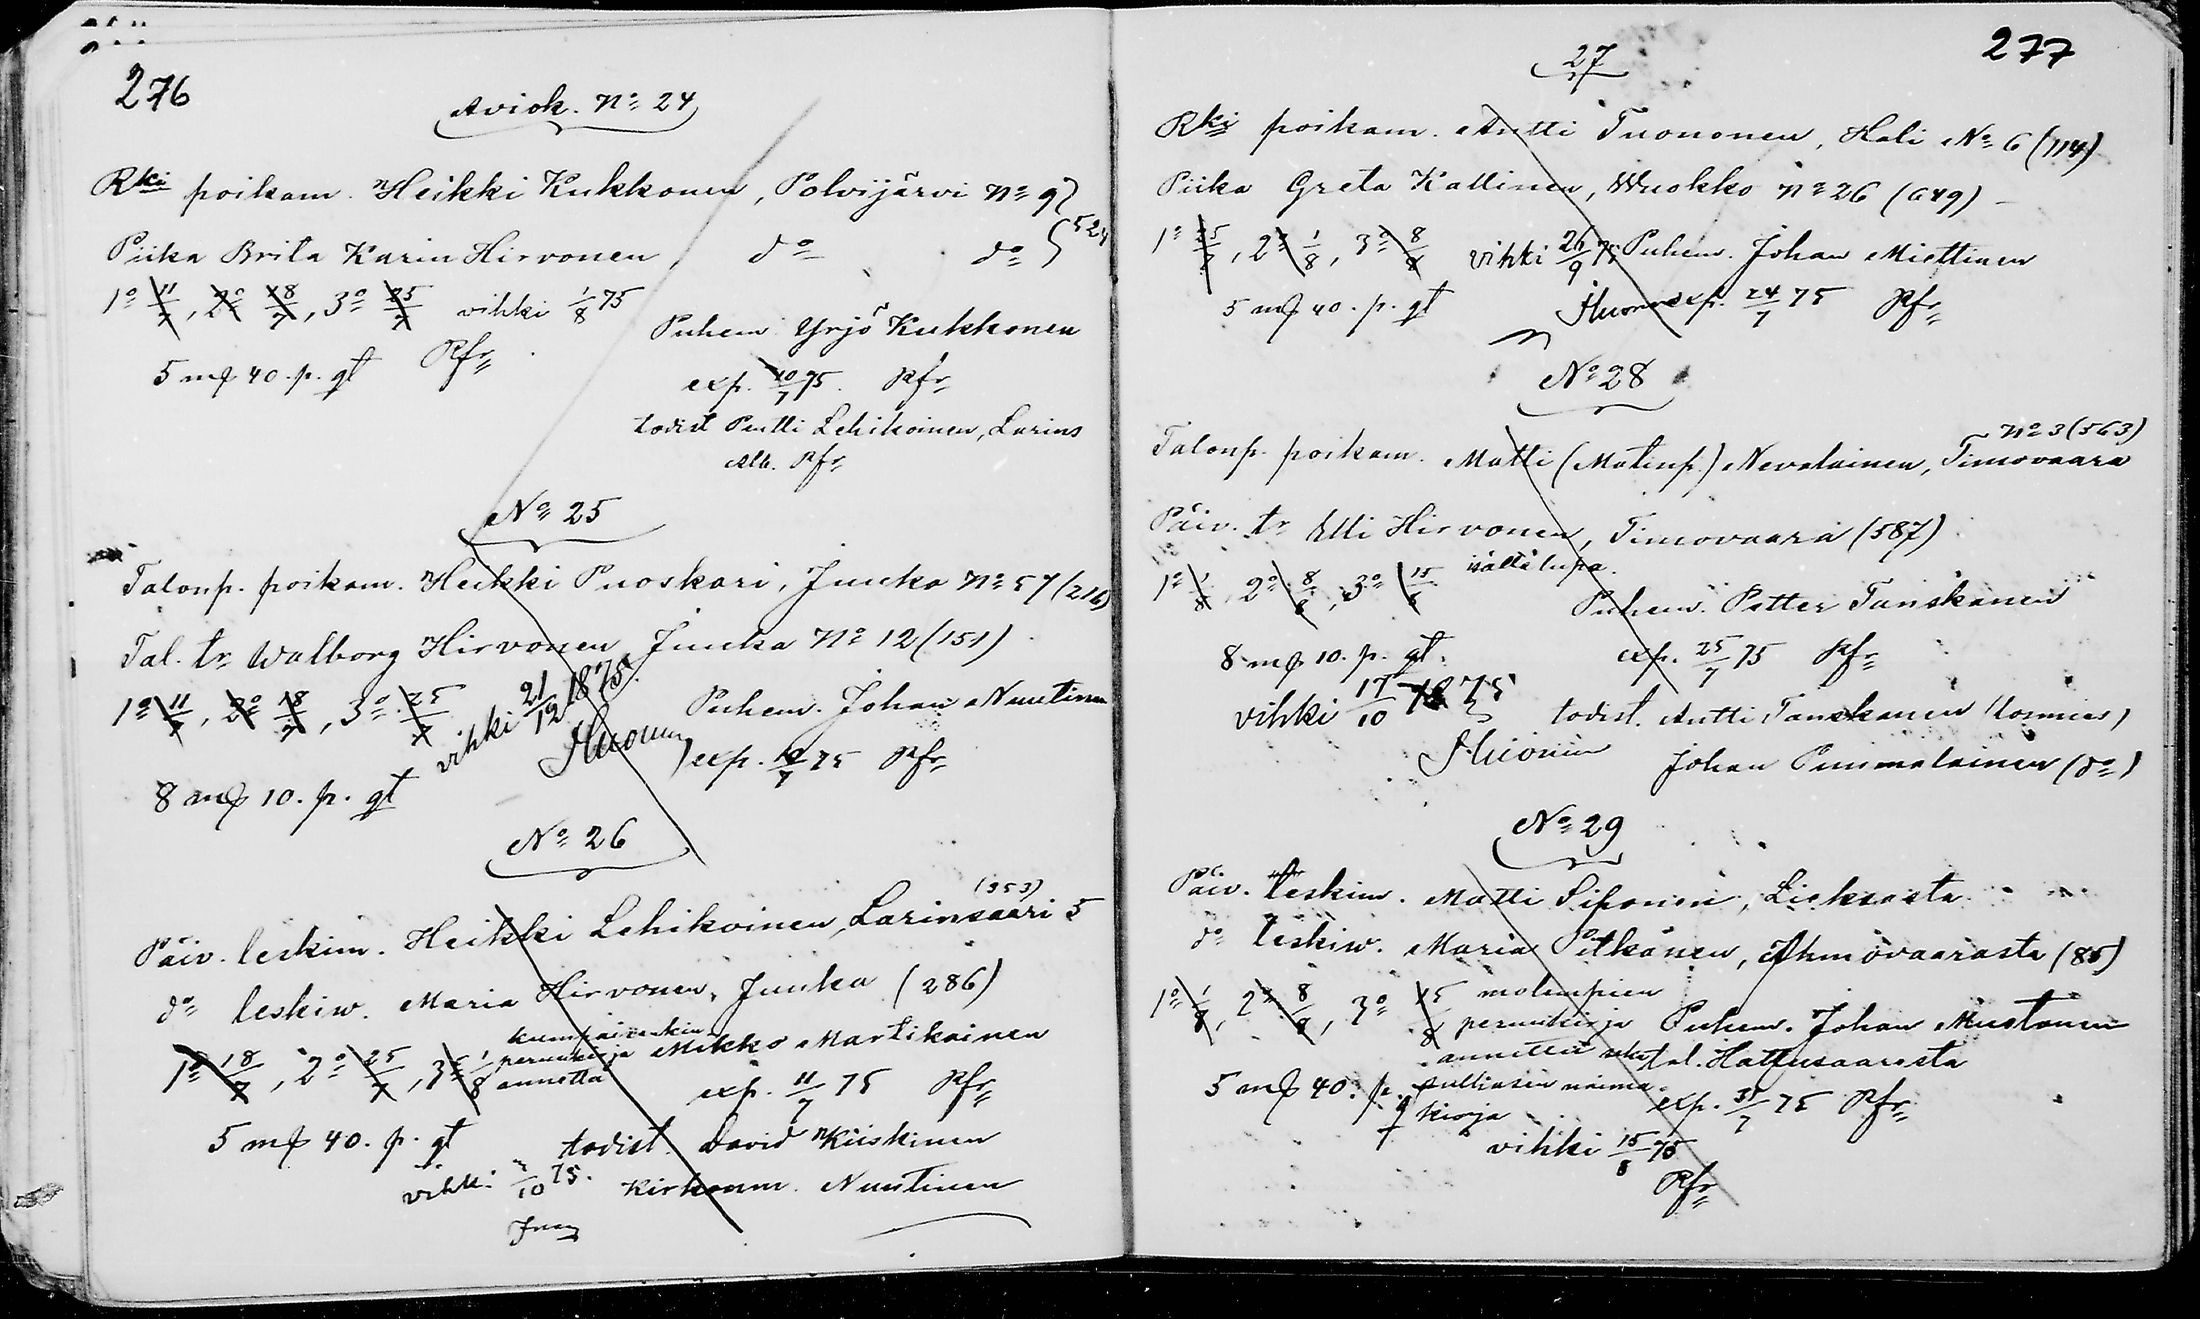 276
Aviok. No 24
Rki poikam. Heikki Kukkonen, Polvijärvi No 9 } 524
Piika Brita Karin Hirvonen do do
1o 11/7, 2o 18/7, 3o 25/7 vihki 1/8 75
Puhem. Yrjö Kukkonen
5 mk 40. p. gt Pfr
exp. 10/7 75. Pfr
todist Pentti Lehikoinen, Larins
Alb. Pfr
No 25
Talonp. poikam. Heikki Puoskari, Juuka No 57 (216)
Tal. tr Walborg Hirvonen Juuka No 12 (151)
1o 11/7, 2o 18/7, 3o 25/7 vihki 21/12 1875.
Puhem. Johan Nuutinen
8 mk 10. p. gt
exp. 10/7 75 Pfr
No 26
(353)
Päiv. leskim. Heikki Lehikoinen, Larinsaari 5
do leskiw. Maria Hirvonen, Juuka (286)
1o 18/7, 2o 25/7, 3o 1/8 perunkirja annettu Mikko Martikainen
exp. 11/7 75 Pfr
5 mk 40. p. gt todist. David Kiiskinen
vihki /10 75. Kirkonm. Nuutinen
277
27
Rki poikam. Antti Tuononen, Koli No 6 (714)
Piika Greta Kallinen, Wuokko No 26 (649)
1o 25/7, 2o 1/8, 3o 8/8 vihki 26/9 75 Puhem. Johan Miettinen
5 mk 40. p. gt exp. 24/7 75 Pfr
No 28
No 3 (563)
Talonp. poikam. Matti (Matinp.) Nevalainen, Timovaara
Päiv. tr Elli Hirvonen, Timovaara (587)
1o 1/8, 2o 8/8, 3o 15/8 isältä lupa.
Puhem. Petter Tanskanen
8 mk 10. p. gt. exp. 25/7 75 Pfr
vihki 17/10 1875 todist. Antti Tanskanen
Johan Purmalainen (do)
No 29
Päiv. leskim. Matti Siponen, Lieksasta
do leskiw. Maria Pitkänen, Ahmovaarasta (85)
1o 1/8, 2o 8/8, 3o 15/8 molempien
perunkirja Puhem. Johan Mustonen
annettu sekä tal. Hattusaaresta
5 mk 40. p. gt sulhasen naima-
kirja exp. 31/7 75 Pfr
vihki 15/8 75
Pfr